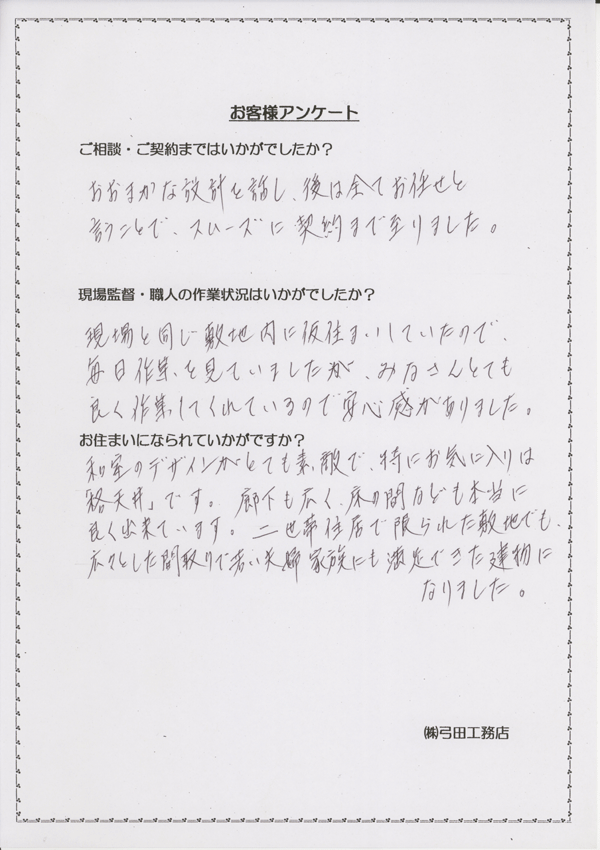 お客様アンケート
ご相談・ご契約まではいかがでしたか？
おおまかな設計を話し、後は全てお任せと
言うことで、スムーズに契約まで至りました。
現場監督・職人の作業状況はいかがでしたか？
現場と同じ敷地内に仮住まいしていたので、
毎日作業を見ていましたが、みなさんとても
良く作業してくれているので安心感がありました。
お住まいになられていかがですか？
和室のデザインがとても素敵で、特にお気に入りは
「格天井」です。廊下も広く、床の間なども本当に
良く出来ています。二世帯住居で限られた敷地でも、
広々とした間取りで若い夫婦家族にも満足できた建物に
なりました。
㈱弓田工務店